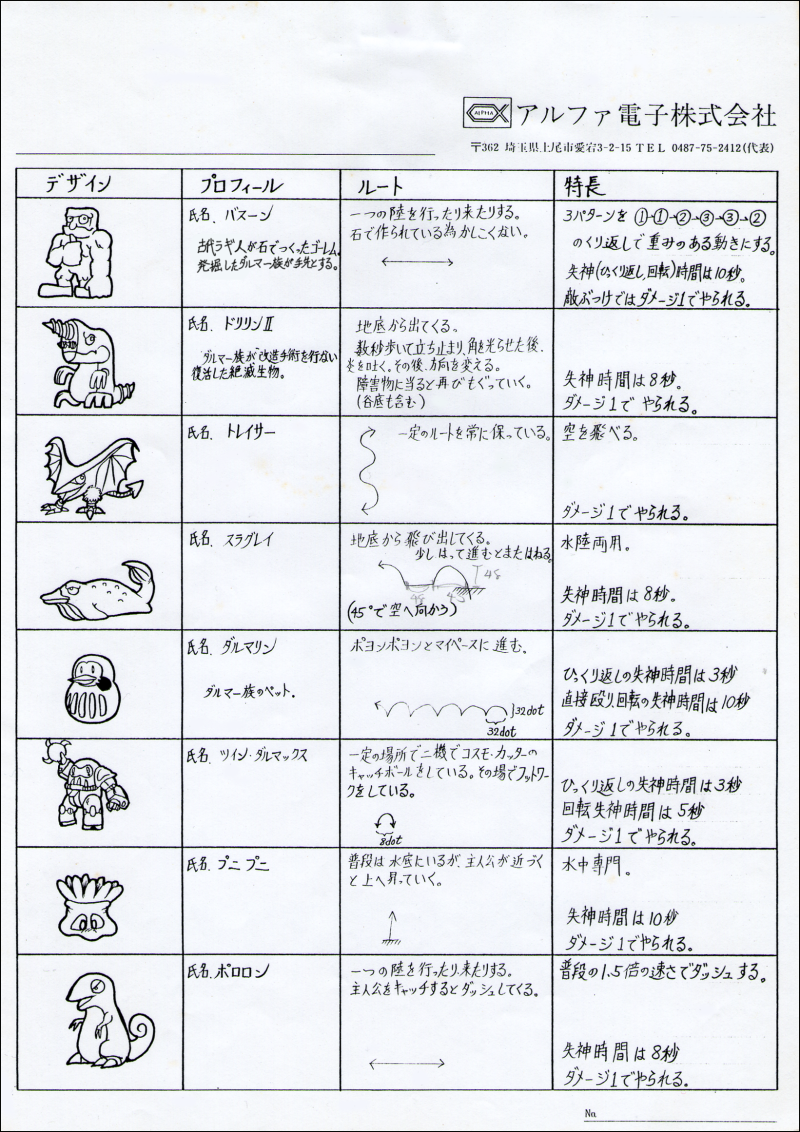 ALPHA
アルファ電子株式会社
〒362 埼玉県上尾市愛宕3-2-15 TEL 0487-75-2412(代表)
デザイン プロフィール ルート 特長
氏名. バスーン
古代ラギ人が石でつくったゴーレム。
発掘したダルマー族が手先とする。
一つの陸を行ったり来たりする。
石で作られている為かしこくない。
3パターンを ①→①→②→③→③→②
のくり返しで重みのある動きにする。
失神(ひっくり返し,回転)時間は10秒。
敵ぶつけではダメージ1でやられる。
氏名. ドリリンⅡ
ダルマー族が改造手術を行ない
復活した絶滅生物。
地底から出てくる。
数秒歩いて立ち止まり、角を光らせた後、
炎を吐く。その後、方向を変える。
障害物に当ると再びもぐっていく。
(谷底も含む)
失神時間は8秒。
ダメージ1でやられる。
氏名. トレイサー
一定のルートを常に保っている。
空を飛べる。
ダメージ1でやられる。
氏名. スラグレイ
地底から飛び出してくる。
少しはって進むとまたはねる。
48
48
(45°で空へ向かう)
水陸両用。
失神時間は8秒。
ダメージ1でやられる。
氏名. ダルマリン
ダルマー族のペット。
ポヨンポヨンとマイペースに進む。
32dot
32dot
ひっくり返しの失神時間は3秒
直接殴り,回転の失神時間は10秒
ダメージ1でやられる。
氏名. ツイン・ダルマックス
一定の場所で二機でコスモ・カッターの
キャッチボールをしている。その場でフットワー
クをしている。
8dot
ひっくり返しの失神時間は3秒
回転失神時間は5秒
ダメージ1でやられる。
氏名. プニプニ
普段は水底にいるが、主人公が近づく
と上へ昇っていく。
水中専門。
失神時間は10秒
ダメージ1でやられる。
氏名. ポロロン
一つの陸を行ったり、来たりする。
主人公をキャッチするとダッシュしてくる。
普段の1.5倍の速さでダッシュする。
失神時間は8秒
ダメージ1でやられる。
№